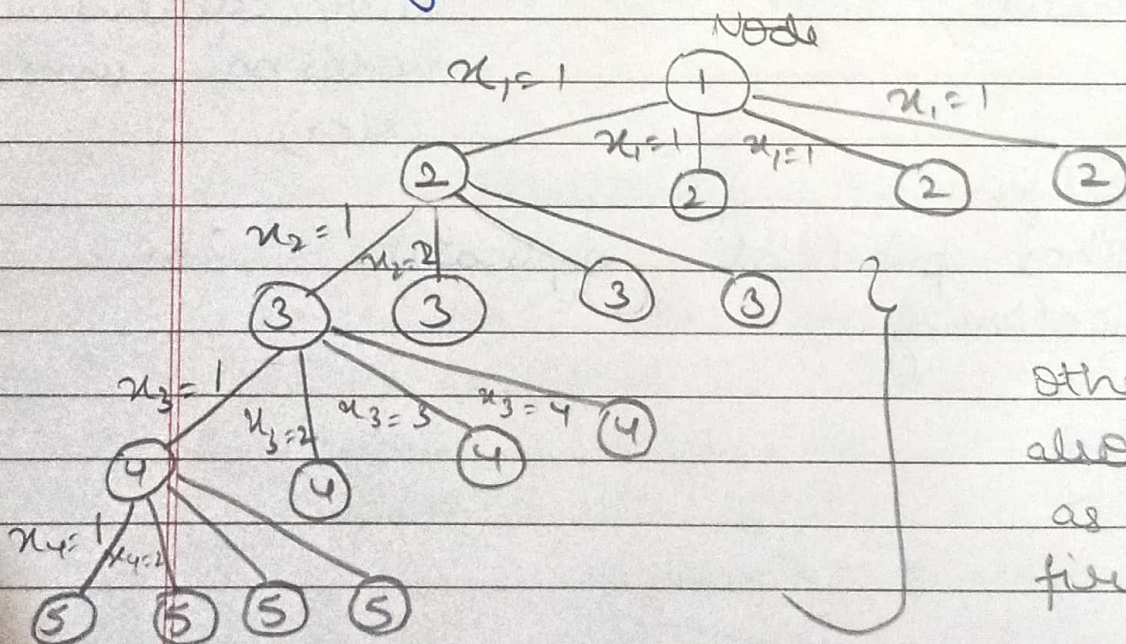 Node
x₁=1 1 x₁=1
x₁=1 x₁=1
2 2 2 2
x₂=1 x₂=2
3 3 3 3
x₃=1 x₃=2 x₃=3 x₃=4
4 4 4 4
x₄=1 x₄=2
5 5 5 5
oth
also
as